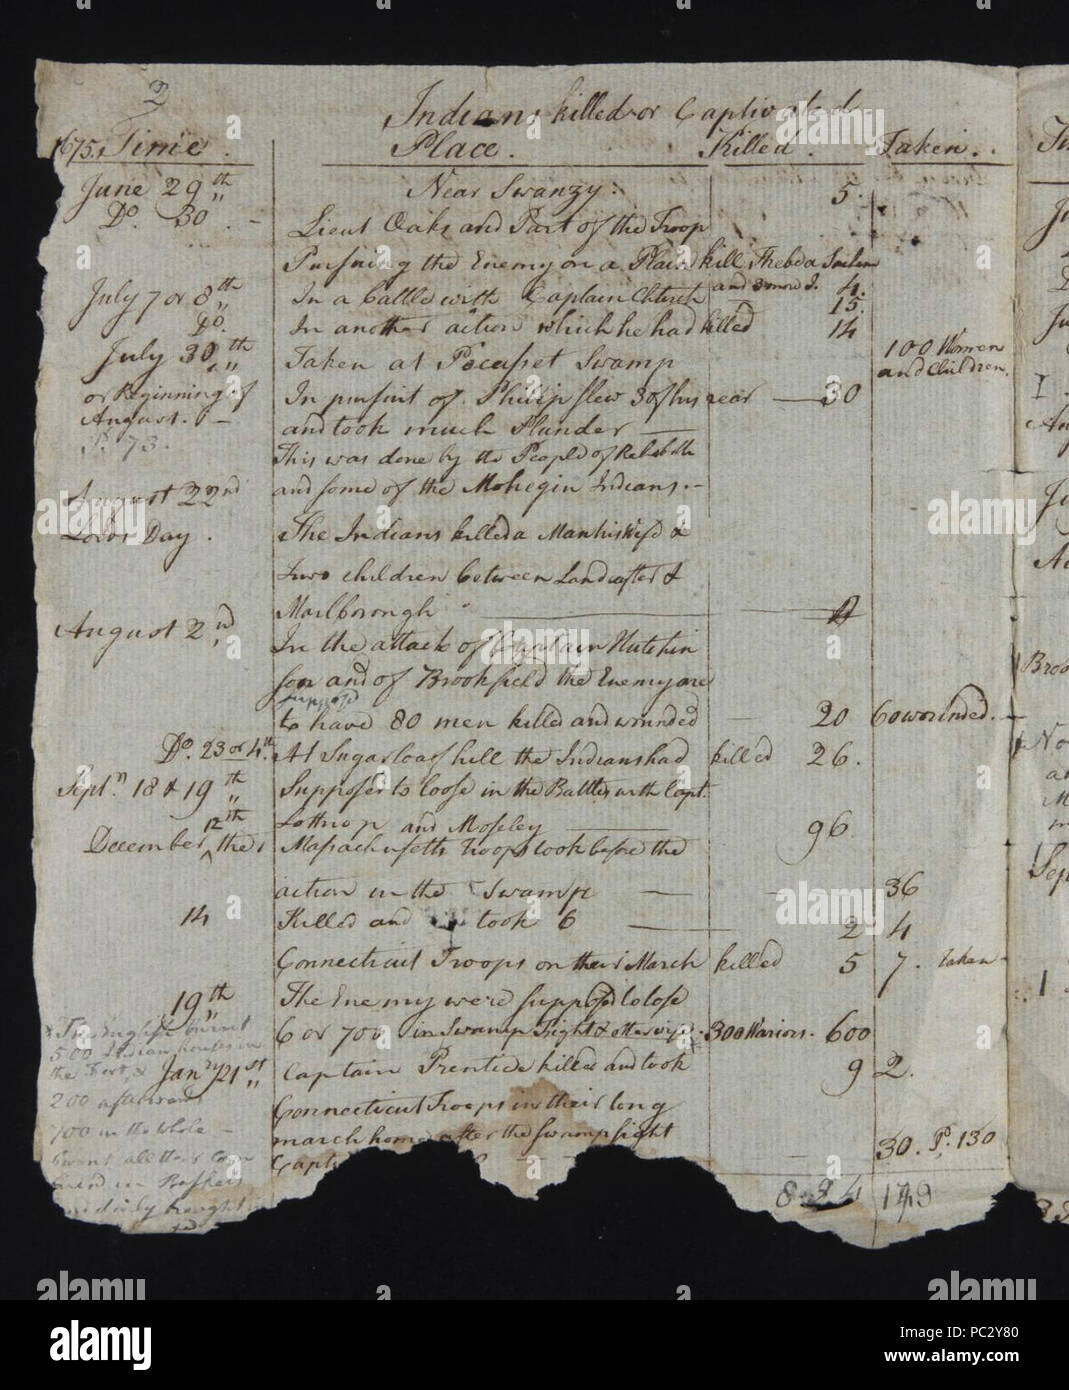 2
Indians killed or Captivated
1675. Time. Place. Killed. Taken.
June 29th Near Swanzy. 5.
Do. 30 Lieut Oaks and Part of the Troop
Pursuing the Enemy on a Plain kill Thebe a Sachem
and 3 more I. 4.
July 7 or 8th In a battle with Captain Church 15.
Do. In another action which he had killed 14
July 30th Taken at Pocasset Swamp 100 Women and Children.
or Beginning of In pursuit of Philip slew 30 of his rear 30
August. and took much Plunder
P. 73. This was done by the People of Rehoboth
August 22nd and some of the Mohegin Indians.
Lords Day. The Indians killed a Man his Wife &
two children between Landcaster &
Marlborough
August 2nd In the attack of Captain Hutchin
son and of Brookfield the Enemy are
supposd
to have 80 men killed and wounded 20 60 wounded.
Do. 23 or 4th. At Sugarloaf hill the Indians had killed 26.
Septn 18 & 19th Supposed to loose in the Battles with Capt.
Lothrop and Moseley 96
December 12th the Massachusetts Troops took before the
action in the Swamp 36
14 Killed and took 6 2 4
Connecticut Troops on their March killed 5 7. taken
19th The Enemy were supposed to lose
6 or 700 in Swamp Fight & otherwise. 300 Wariors. 600
* The English burnt
500 Indian houses in
the Fort, &
Jany 21st Captain Prentice killed and took 9 2.
200 afterward
700 in the whole
Connecticut Troops in their long
march home after the Swamp fight 30. P. 130
burnt all their Corn
in Baskets
149
alamy
Image ID: PC2Y80
www.alamy.com